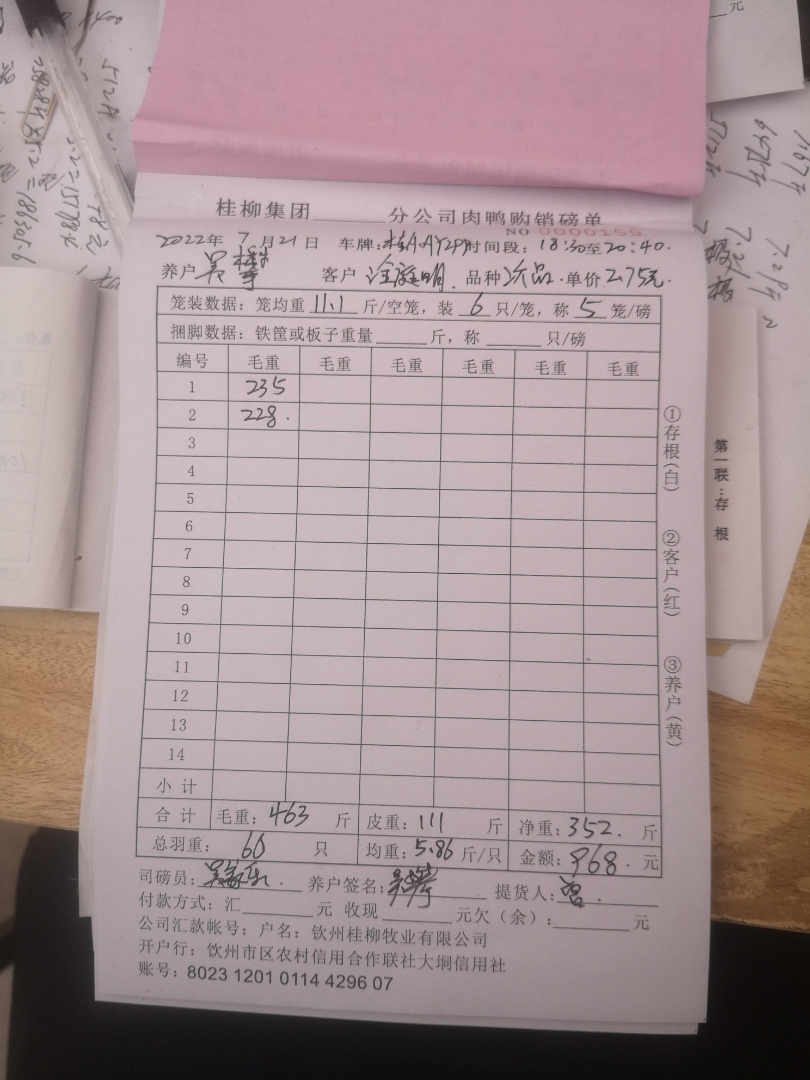 元
桂柳集团______分公司肉鸭购销磅单
NO 0000159
2022年 7月21日 车牌: 时间段: 18:30至20:40.
养户 吴 客户 品种 次品. 单价 2.75元.
笼装数据: 笼均重 11.1 斤/空笼, 装 6 只/笼, 称 5 笼/磅
捆脚数据: 铁筐或板子重量______斤, 称______只/磅
编号 毛重 毛重 毛重 毛重 毛重 毛重
1 235
2 228.
3
4
5
6
7
8
9
10
11
12
13
14
小计
合计 毛重: 463 斤 皮重: 111 斤 净重: 352. 斤
总羽重: 60 只 均重: 5.86 斤/只 金额: 968. 元
司磅员: 养户签名: 提货人:
付款方式: 汇______元 收现______元欠(余):______元
公司汇款帐号: 户名: 钦州桂柳牧业有限公司
开户行: 钦州市区农村信用合作联社大垌信用社
账号: 8023 1201 0114 4296 07
①存根(白)
②客户(红)
③养户(黄)
第一联:存根